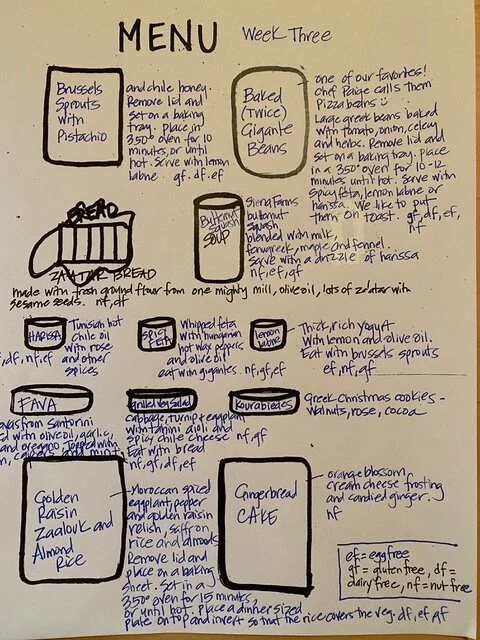 MENU Week Three
Brussels
Sprouts
with
Pistachio
and chile honey.
Remove lid and
set on a baking
tray. Place in
350° oven for 10
minutes, or until
hot. Serve with lemon
labne. gf. df. ef
Baked
(Twice)
Gigante
Beans
one of our favorites!
Chef Paige calls them
Pizza beans
Large greek beans baked
with tomato, onion, celery
and herbs. Remove lid and
set on a baking tray. Place
in a 350° oven for 10-12
minutes until hot. Serve with
spicy feta, lemon labne or
harissa. We like to put
them on toast. gf, df, ef,
nf
BREAD
ZA'ATAR BREAD
made with fresh ground flour from one mighty mill, olive oil, lots of za'atar with
sesame seeds. nf, df
Butternut
Squash
SOUP
Siena Farms
butternut
squash
blended with milk,
fenugreek, maple and fennel.
Serve with a drizzle of harissa
nf, ef, gf
HARISSA
Tunisian hot
chile oil
with rose
and other
spices
, df, nf, ef
SPICY
FETA
Whipped feta
with hungarian
hot wax peppers
and olive oil
eat with gigantes. nf, gf, ef
lemon
labne
Thick, rich yogurt
with lemon and olive oil.
Eat with brussels sprouts
ef, nf, gf
FAVA
favas from Santorini
with olive oil, garlic,
and oregano. Topped with
capers and mint
grilled veg salad
cabbage, turnip + eggplant
with tahini aioli and
spicy chile cheese nf, gf
Eat with bread
nf, gf, df, ef
Kourabiedes
Greek Christmas cookies -
walnuts, rose, cocoa
Golden
Raisin
Zaalouk and
Almond
Rice
Moroccan spiced
eggplant, pepper
and golden raisin
relish, saffron
rice and almonds
Remove lid and
place on a baking
sheet. Set in a
350° oven for 15 minutes,
or until hot. Place a dinner sized
plate on top and invert so that the rice covers the veg. df, ef, gf
Gingerbread
CAKE
orange blossom,
cream cheese frosting
and candied ginger.
nf
ef = egg free
gf = gluten free, df =
dairy free, nf = nut free